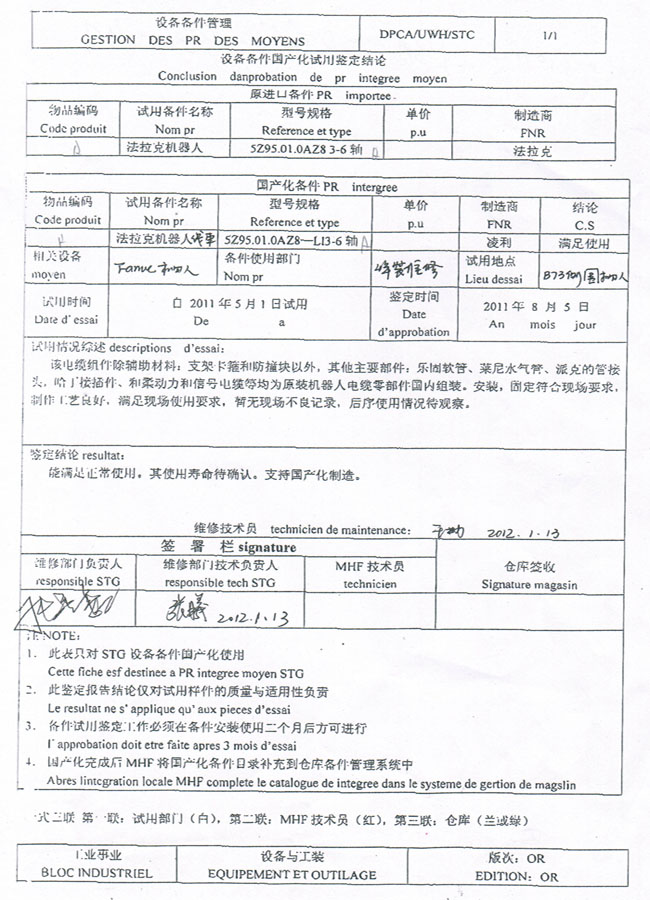 设备备件管理
GESTION DES PR DES MOYENS
DPCA/UWH/STC
1/1
设备备件国产化试用鉴定结论
Conclusion danprobation de pr integree moyen
原进口备件 PR importee
物品编码 试用备件名称 型号规格 单价 制造商
Code produit Nom pr Reference et type p.u FNR
法拉克机器人 5Z95.01.0AZ8 3-6 轴 法拉克
国产化备件 PR intergree
物品编码 试用备件名称 型号规格 单价 制造商 结论
Code produit Nom pr Reference et type p.u FNR C.S
法拉克机器人线束 5Z95.01.0AZ8—LI3-6 轴 凌利 满足使用
相关设备 Fanuc 机器人 备件使用部门 焊装维修 试用地点
moyen Nom pr Lieu dessai
试用时间 自 2011 年 5 月 1 日试用 鉴定时间 2011 年 8 月 5 日
Date d' essai De a Date An mois jour
d'approbation
试用情况综述 descriptions d'essai:
该电缆组件除辅助材料：支架卡箍和防撞块以外，其他主要部件：乐固软管、莱尼水气管、派克的管接
头，哈丁接插件、和柔动力和信号电缆等均为原装机器人电缆零部件国内组装。安装，固定符合现场要求，
制作工艺良好，满足现场使用要求，暂无现场不良记录，后序使用情况待观察。
鉴定结论 resultat:
能满足正常使用。其使用寿命待确认。支持国产化制造。
维修技术员 technicien de maintenance: 2012.1.13
签 署 栏 signature
维修部门负责人 维修部门技术负责人 MHF 技术员 仓库签收
responsible STG responsible tech STG technicien Signature magasin
2012.1.13
注 NOTE:
1. 此表只对 STG 设备备件国产化使用
Cette fiche esf destinee a PR integree moyen STG
2. 此鉴定报告结论仅对试用样件的质量与适用性负责
Le resultat ne s' applique qu' aux pieces d'essai
3. 备件试用鉴定工作必须在备件安装使用三个月后方可进行
l' approbation doit etre faite apres 3 mois d'essai
4. 国产化完成后 MHF 将国产化备件目录补充到仓库备件管理系统中
Abres lintcgration locale MHF complete le catalogue de integree dans le systeme de gertion de magslin
一式三联 第一联：试用部门（白），第二联：MHF 技术员（红），第三联：仓库（兰或绿）
工业事业 设备与工装 版次：OR
BLOC INDUSTRIEL EQUIPEMENT ET OUTILAGE EDITION: OR